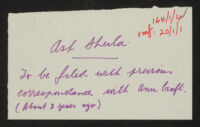 164/1/4
reef. 20/1/1
Ask Sheila.
To be filed with previous
correspondence with Ann Craft.
(About 3 years ago)